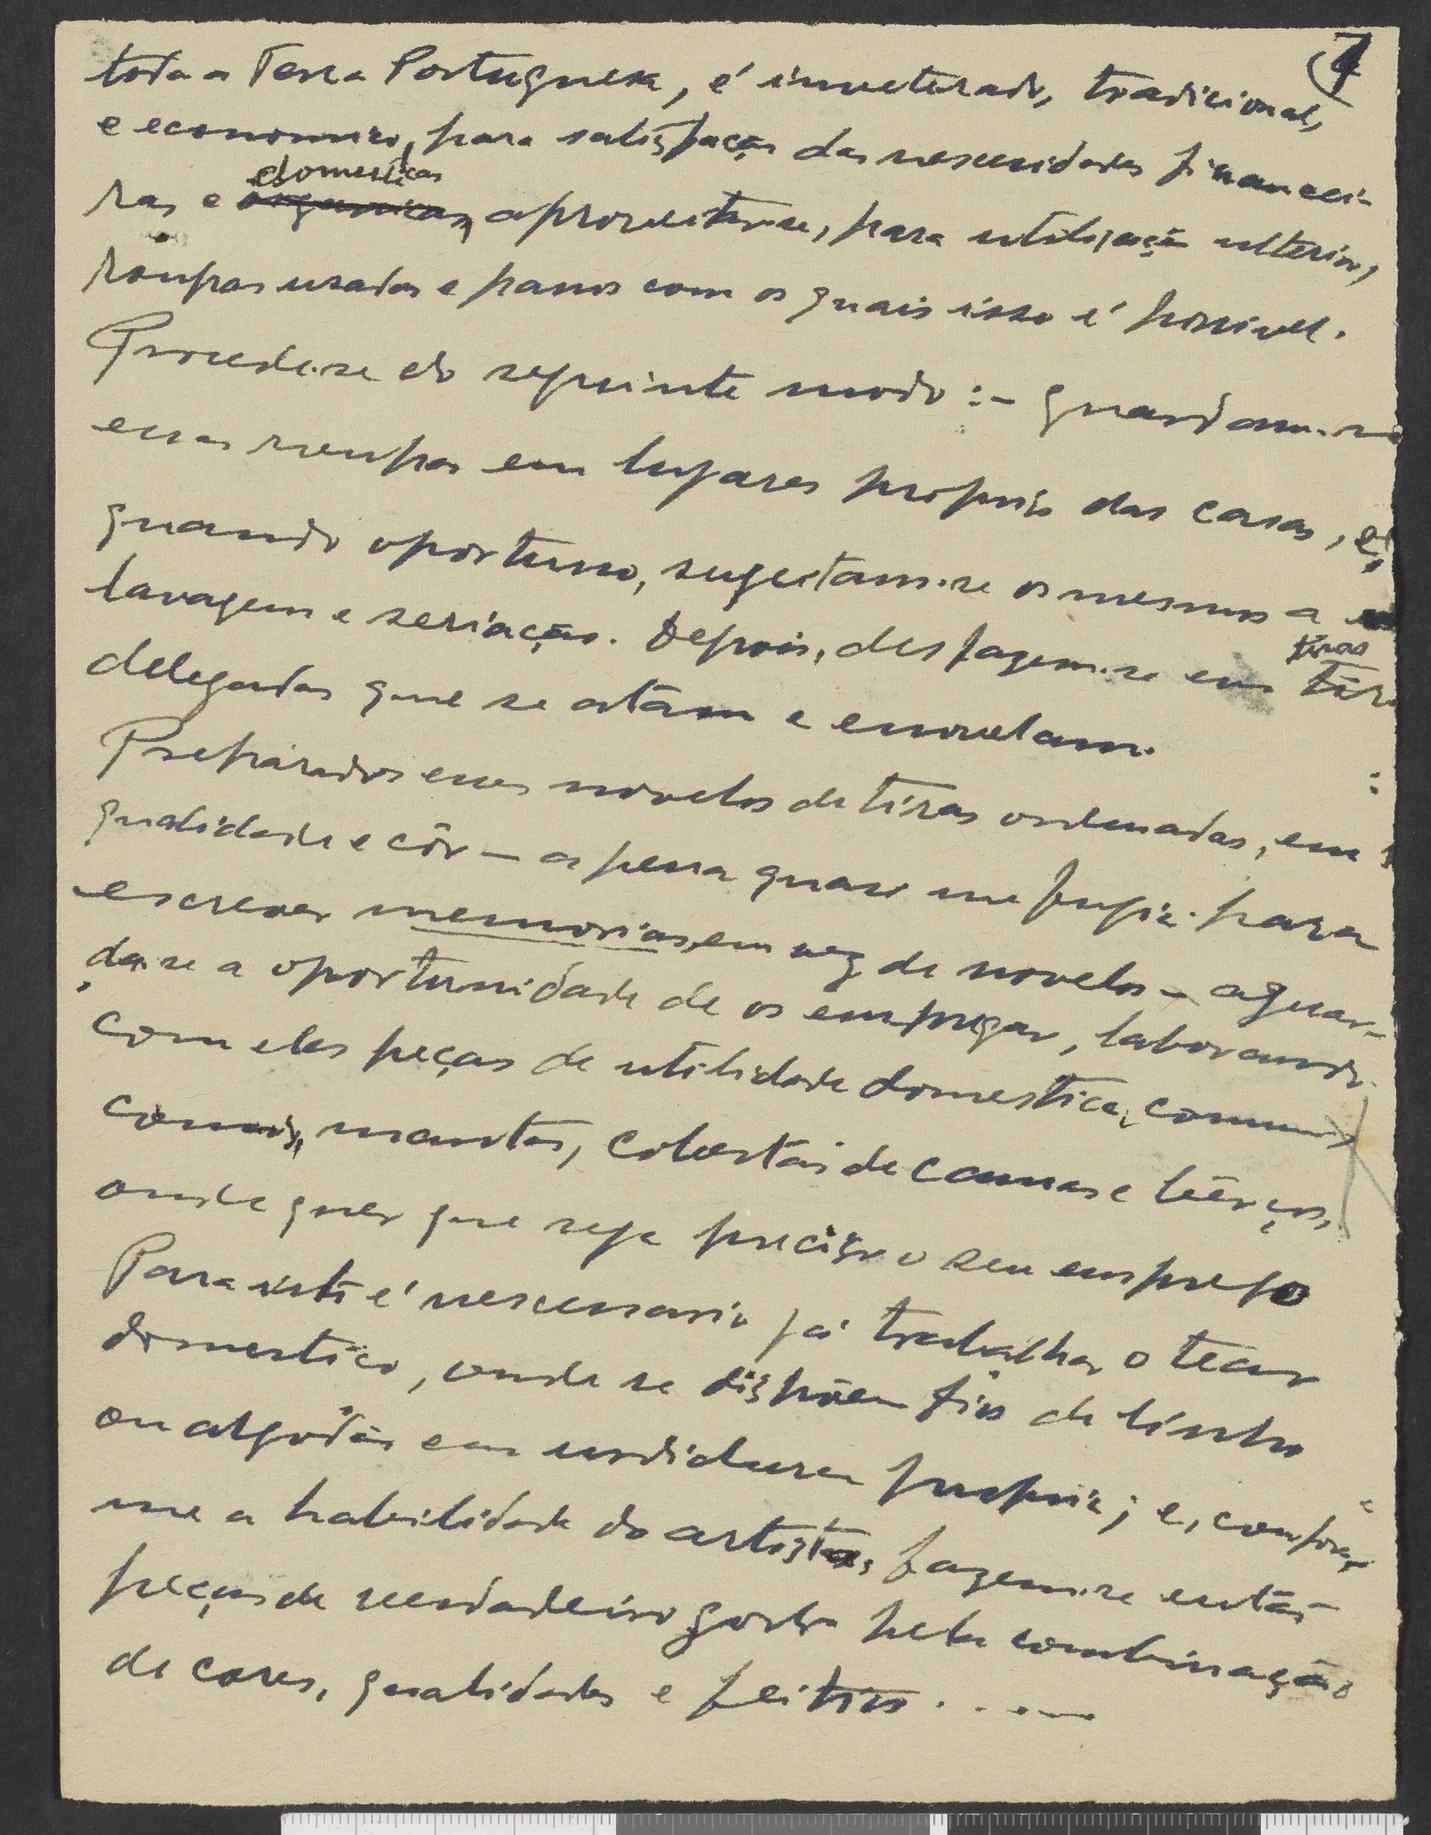 7
toda a Terra Portuguesa, é inveterado, tradicional,
e economico, para satisfação das nescessidades financei-
domesticas
ras e organicas, aproveitarem-se, para utilização ulterior,
roupas usadas e panos com os quais isso é possivel.
Procede-se do seguinte modo :- guardam-se
essas roupas em lugares proprios das casas, e,
quando oportuno, sugeitam-se os mesmos a
tiras
lavagem e seriação. Depois, desfazem-se em tiras
delegadas que se atam e enovelam.
Preparados esses novelos de tiras ordenadas, em
qualidade e côr — a pena quase me fugia para
escrever memorias, em vez de novelos — aguar-
da-se a oportunidade de os empregar, laborando
com eles peças de utilidade domestica, comuns
como, mantas, cobertas de camas e berços,
onde quer que seja preciso o seu emprego
Para isto é nescessario já trabalhar o tear
domestico, onde se dispõem fios de linho
ou algodão em urdidura propria; e, confor-
me a habilidade do artista, fazem-se então
peças de verdadeiro gosto pela combinação
de cores, qualidades e feitios. . . —